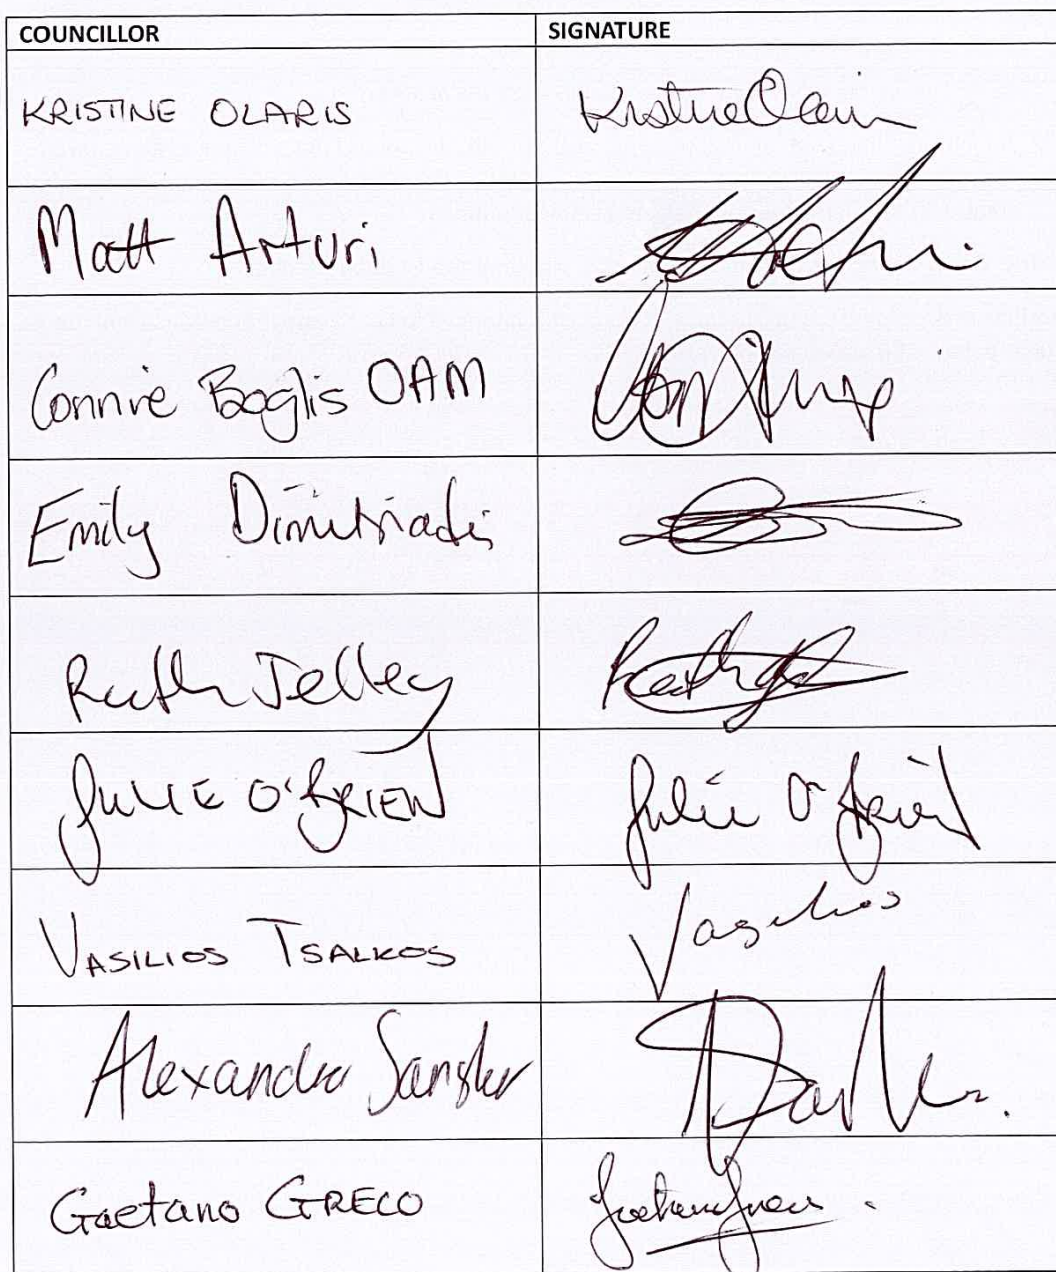 COUNCILLOR SIGNATURE
KRISTINE OLARIS Kristine Olaris
Matt Arturi
Connie Boglis OAM
Emily Dimitriadis
Ruth Jelley
JULIE O'BRIEN Julie O'Brien
VASILIOS TSALKOS Vasilios
Alexandra Sangster
Gaetano GRECO